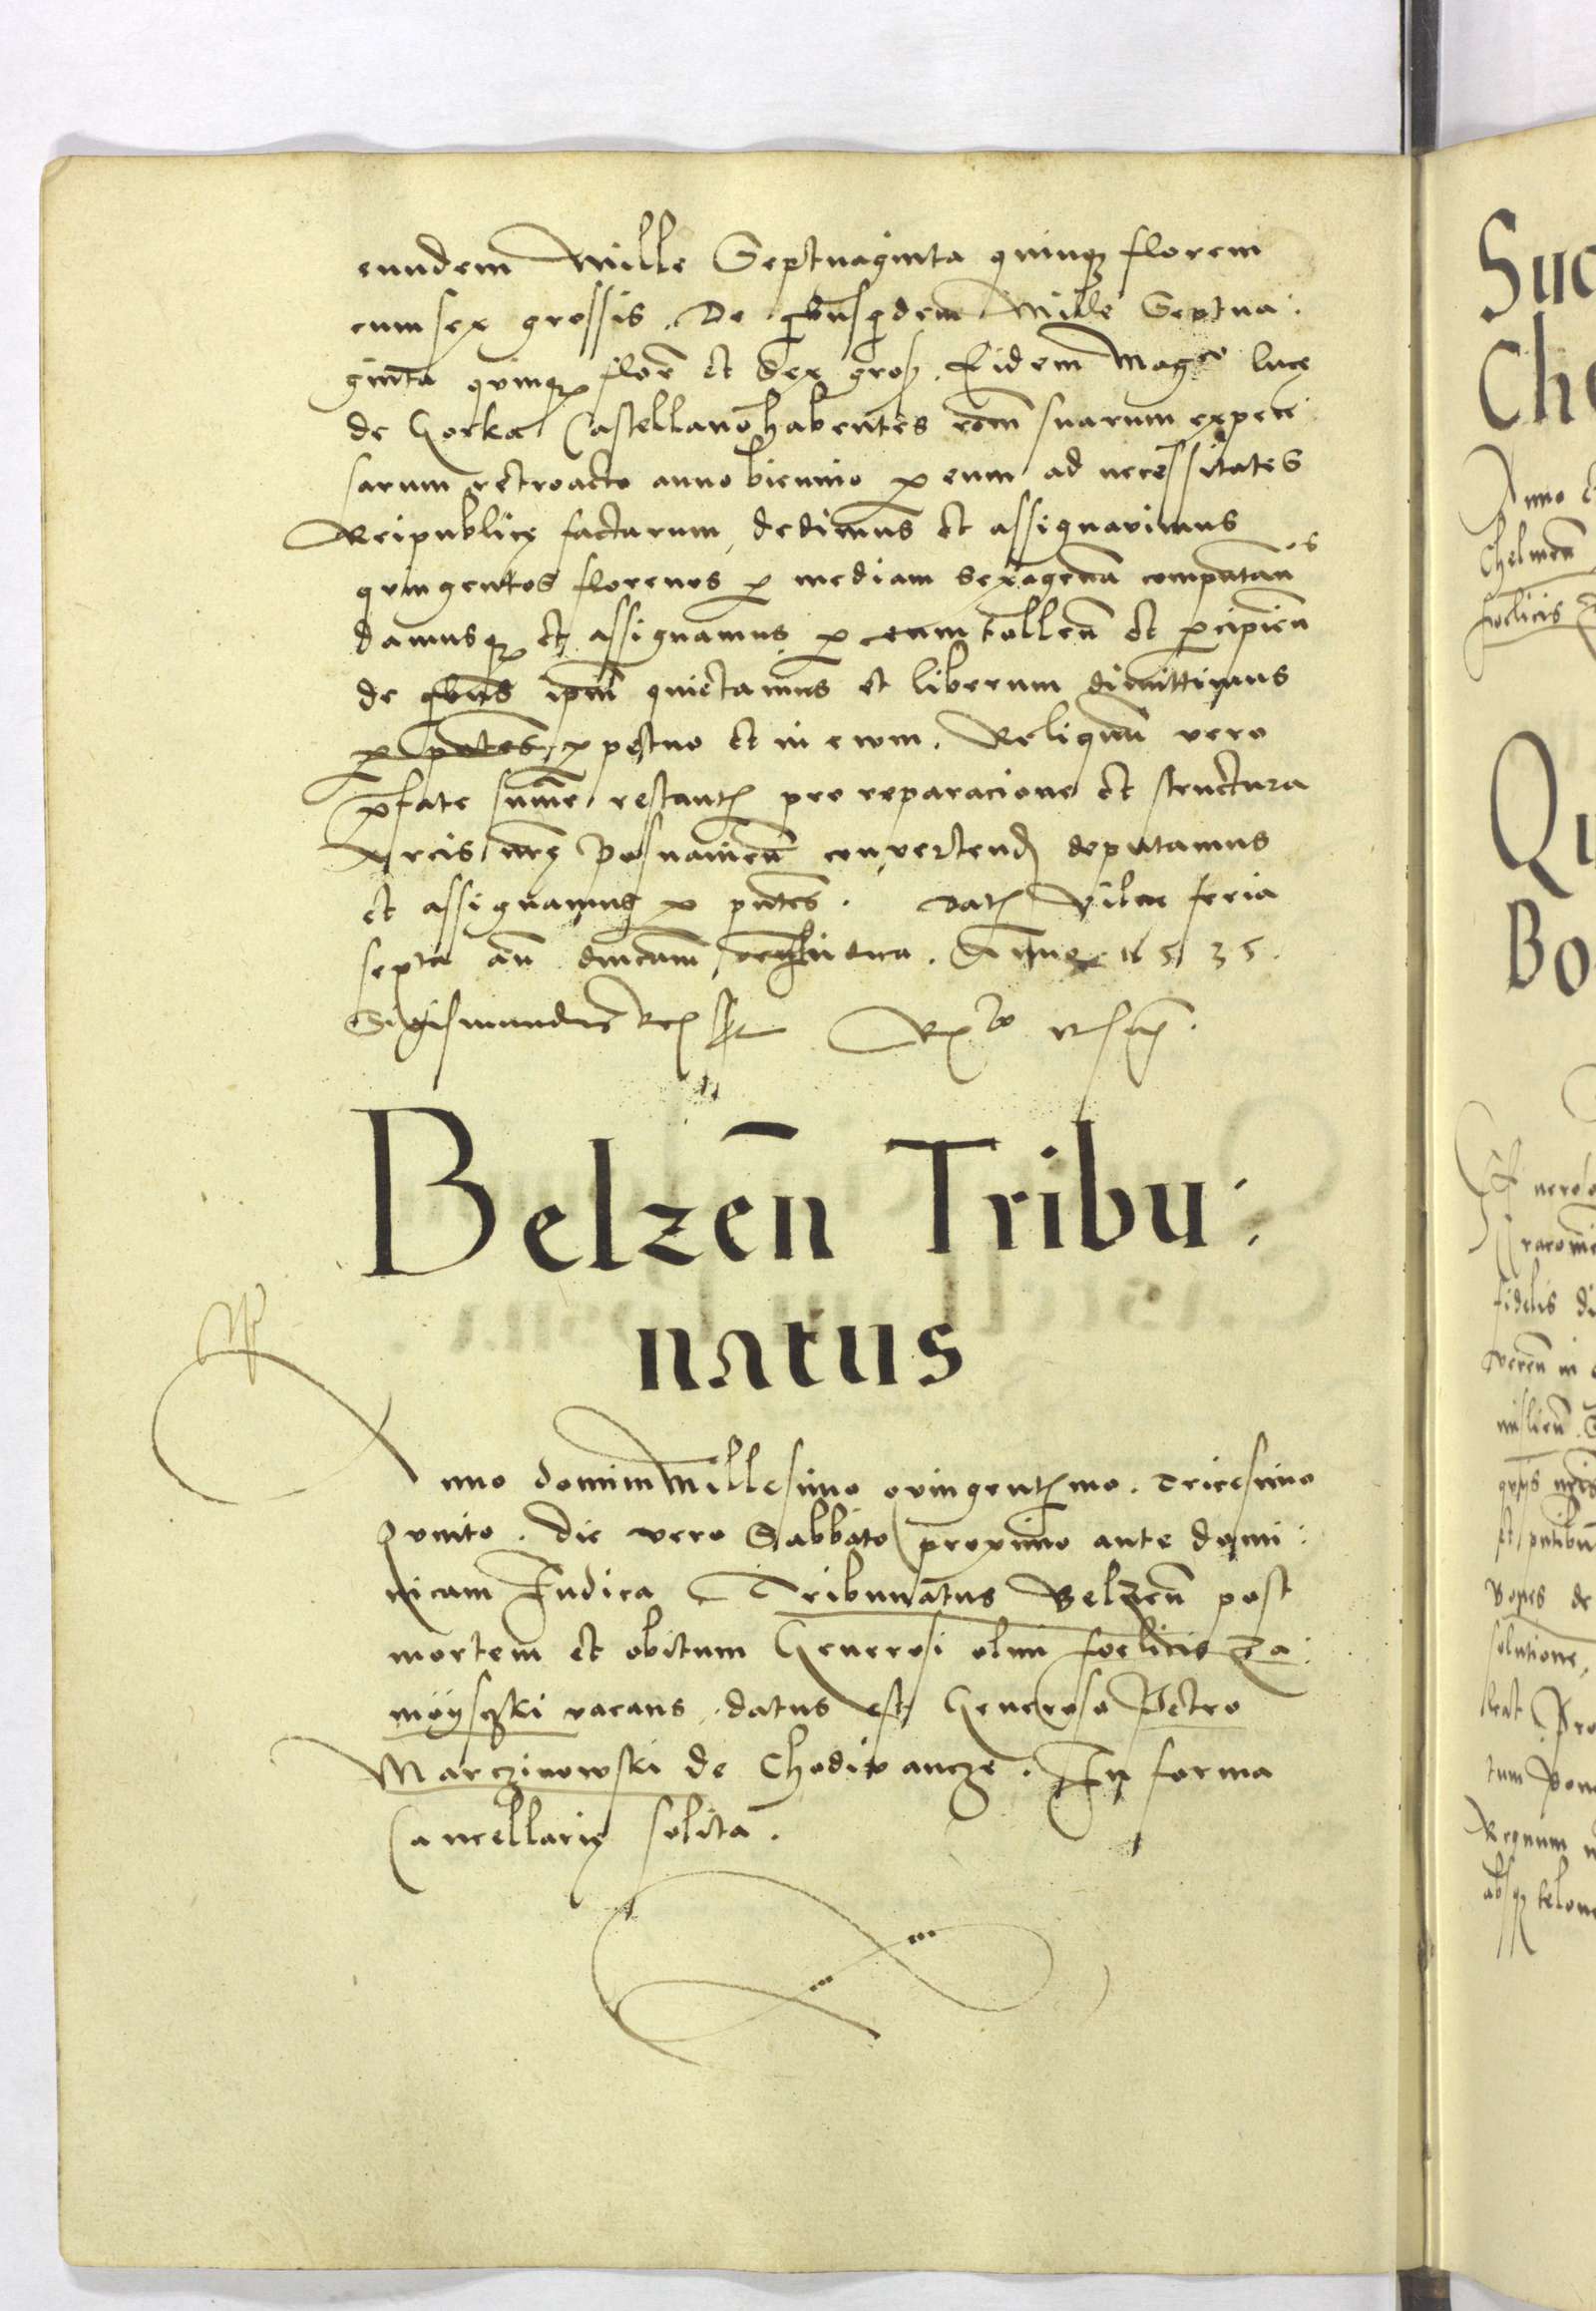 eundem Mille Septuaginta quinqȝ floreni
cum sex grossis. De qbusqdem Mille Septua:
ginta quinqȝ floreñ et sex groß. Eidem Magco Lucę
de Gorka Castellano habentes rōnem suarum expen:
sarum retroacto anno biennio p eum ad necessitates
Reipublicę factarum, dedimus et assignavimus
quingentos florenos p mediam sexagenā computañ
damusqȝ et assignamus p eum tolleñ et pcipieñ
de qbus ipm̄ quietamus et liberum dimittimus
p pñtes, ppetuo et in evum. Reliquū vero
pfate sum̄e restantē pro reparacione et structura
Arcis nr̄ę Posnanieñ convertend deputamus
et assignamus p pñtes. Datē Vilne feria
sexta añ dnicam. Anno 1535.
Sigismundus Rex sst
Belzeñ Tribu:
natus
Anno domini Millesimo quingentēmo. Tricesimo
Quinto. die vero Sabbato proximo ante domi:
nicam Iudica Tribunatus Belzeñ post
mortem et obitum Generosi olim foelicis Za:
moysczki vacans, datus est Generoso Petro
Marczinowski de Chodivancze. In forma
Cancellarię solita.
Suc
Che
Anno
Chelmeñ
foelicis
Qu
Bo
fidelis
solutione,
Regnum